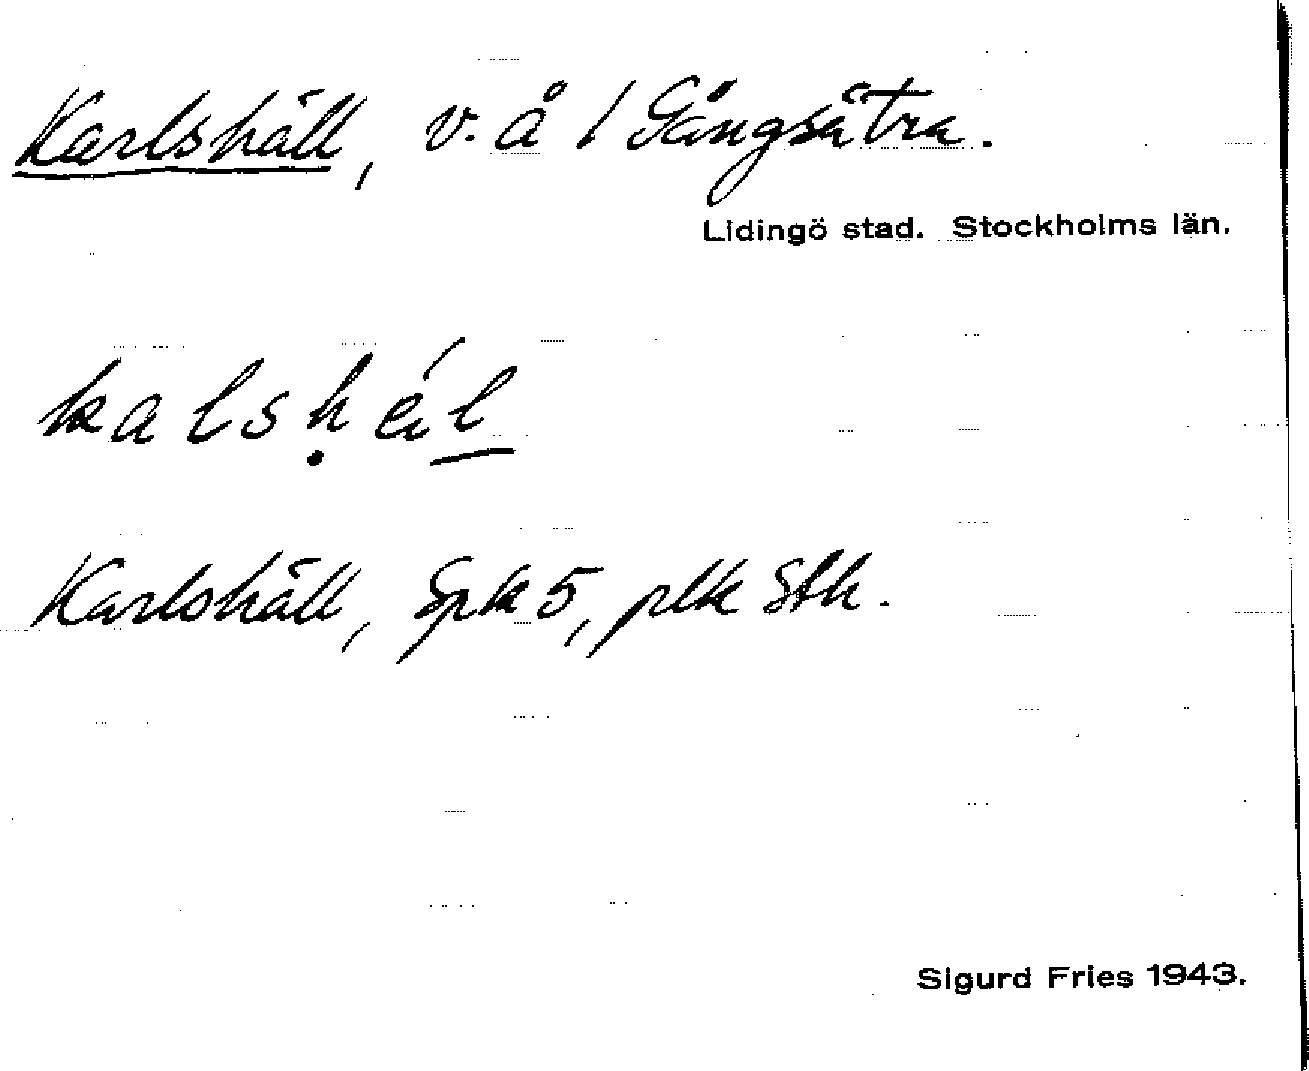 Karlshäll, v. å 1 Gångsätra.
Lidingö stad. Stockholms län.
kalshäl
Karlshäll, Spk 5, plk Sth.
Sigurd Fries 1943.